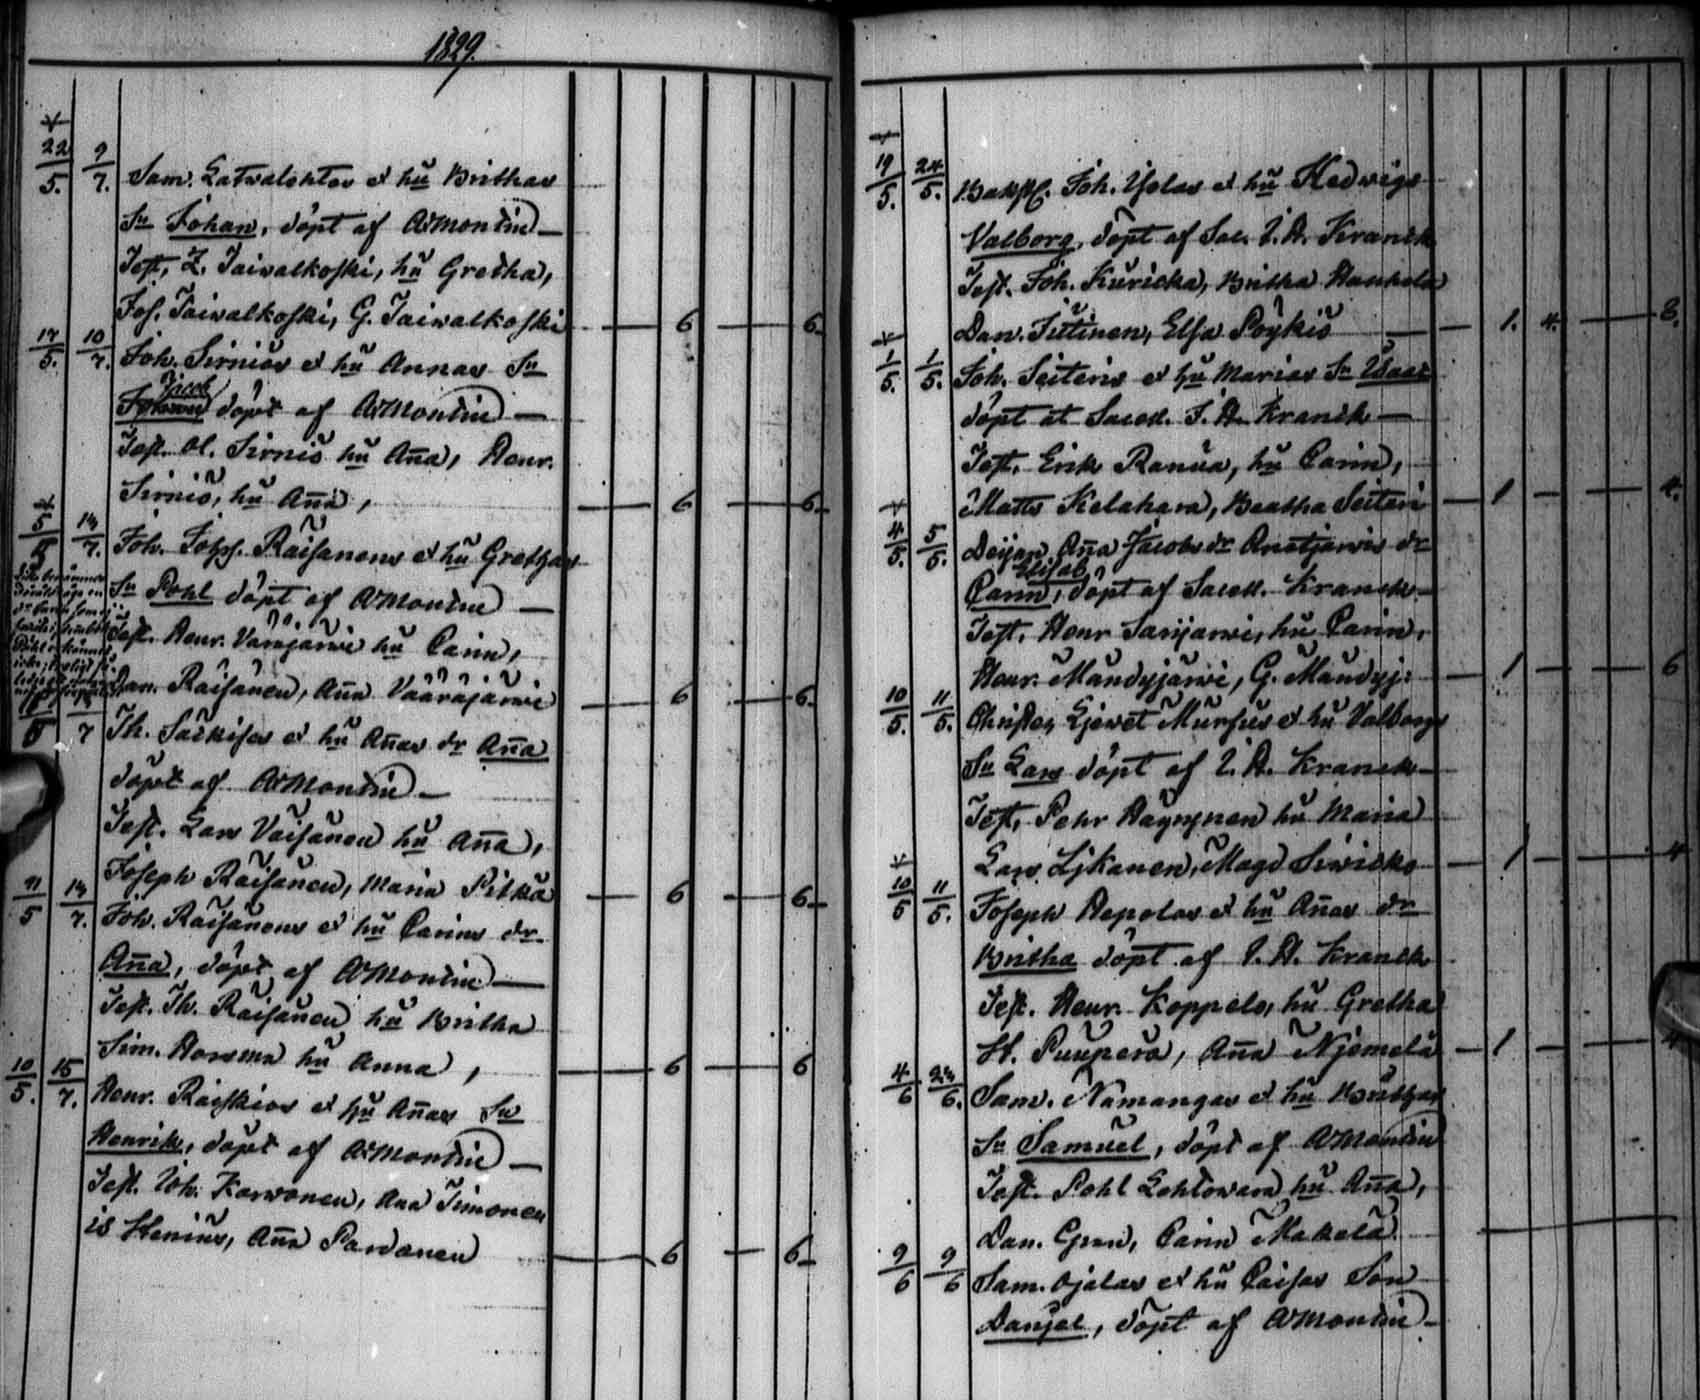 1829.
22/5. 9/7. Sam. Latvalehtos et hu Brithas
Sn Johan, döpt af AMontin
Test. Z. Taivalkoski, hu Gretha,
Jos. Taivalkoski, G. Taivalkoski — 6 — 6
17/5. 10/7. Joh. Sirniös et hu Annas Sn
Jacob
döpt af AMontin
Test. Ol. Sirniö hu Aña, Henr.
Sirniö, hu Aña, — 6 — 6
5/5 14/7. Joh. Johss. Räisänens et hu Grethas
Sn Pohl döpt af AMontin
Test. Henr. Vanjärwi hu Carin,
Dan. Räisänen, Aña Vääräjärwi — 6 — 6
Th. Särkisos et hu Añas dr Aña
döpt af AMontin
Test. Lars Väisänen hu Aña,
Joseph Räisänen, Maria Pitkä — 6 — 6
11/5 14/7. Joh. Räisänens et hu Carins dr
Aña, döpt af AMontin
Test. Th. Räisänen hu Britha
Sim. Horsma hu Anna, — 6 — 6
10/5. 15/7. Henr. Räiskiös et hu Añas Sn
Henrik, döpt af AMontin
Test. Joh. Karwonen, Aña Timonen
is Heniús, Aña Pardanen — 6 — 6
19/5. 24/5. Joh. Yliolas et hu Hedwigs
Valborg, döpt af Sac. J. A. Kranck
Test. Joh. Kuricka, Britha Hanhela
Dan. Jutinen, Elsa Pöykiö — 1. 4. — 8.
1/5. 1/5. Joh. Seiteris et hu Marias Sn Isaac
döpt at Sacell. J. A. Kranck
Test. Erik Ranua, hu Carin,
Matts Kelahara, Beatha Seiteri — 1 — 4.
4/5. 5/5. Deijan Aña Jacobs dr Anetjärwis dr
Elisab.
Carin, döpt af Sacell. Kranck
Test. Henr Sarijärwi, hu Carin,
Henr. Mäudyjärwi, G. Mäudyj: — 1 — 6
10/5. 11/5. Christer Ljewet Mursus et hu Valborgs
Sn Lars döpt af J. A. Kranck
Test. Pehr Häyrynen hu Maria
Lars Lykanen, Magd Siwicko — 1 — 4
10/5 11/5. Joseph Hepolas et hu Añas dr
Britha döpt af J. A. Kranck
Test. Henr. Koppelo, hu Gretha
H. Puuperä, Aña Njemelä — 1 — 4
4/6 24/6. Sam. Nämangas et hu Brithas
Sn Samuel, döpt af AMontin
Test. Pohl Lohtowara hu Aña,
Dan. Gran, Carin Makelä
9/6 9/6 Sam. Ojalas et hu Caisas Son
Danjel, döpt af AMontin